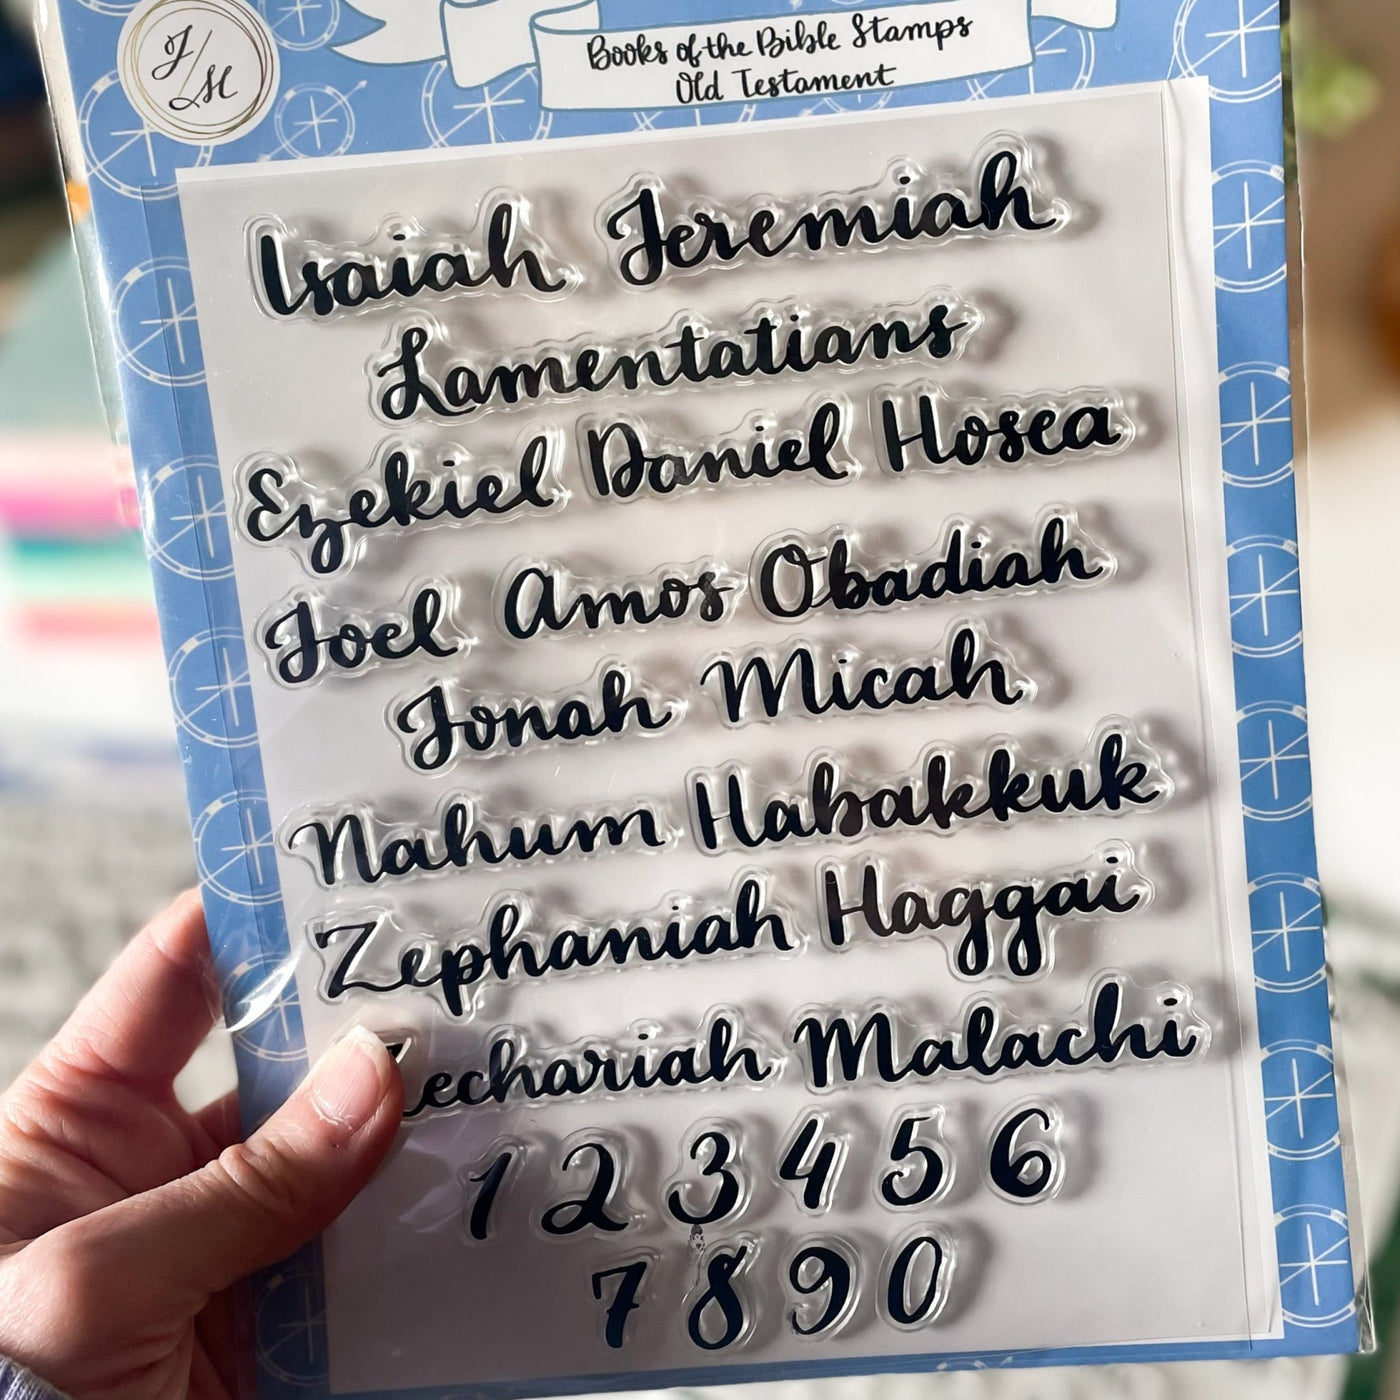 J/M
Books of the Bible Stamps
Old Testament
Isaiah Jeremiah
Lamentatians
Ezekiel Daniel Hosea
Joel Amos Obadiah
Jonah Micah
Nahum Habakkuk
Zephaniah Haggai
Zechariah Malachi
1 2 3 4 5 6
7 8 9 0